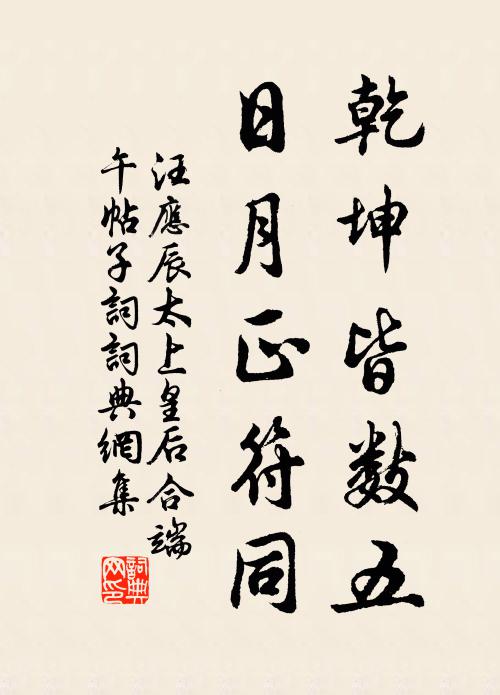 乾坤皆數五
日月正符同
汪應辰太上皇后合端
午帖子詞詞典網集
詞典
网印